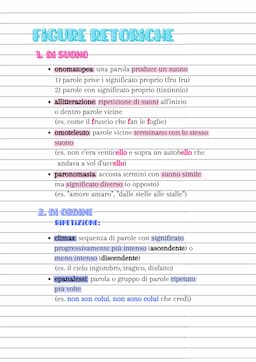 FIGURE RETORICHE
1. DI SUONO
• onomatopea: una parola produce un suono
1) parole prive i significato proprio (fru fru)
2) parole con significato proprio (tintinnio)
• allitterazione: ripetizione di suoni all'inizio
o dentro parole vicine
(es. come il fruscio che fan le foglie)
• omoteleuto: parole vicine terminano con lo stesso
suono
(es. non c'era venticello e sopra un autobello che
andava a vol d'uccello)
• paronomasia: accosta termini con suono simile
ma significato diverso (o opposto)
(es. "amore amaro", "dalle stelle alle stalle")
2. DI ORDINE
RIPETIZIONE:
• climax: sequenza di parole con significato
progressivamente più intenso (ascendente) o
meno intenso (discendente)
(es. il cielo ingombro, tragico, disfatto)
• epanalessi: parola o gruppo di parole ripetuto
più volte
(es. non son colui, non sono colui che credi)